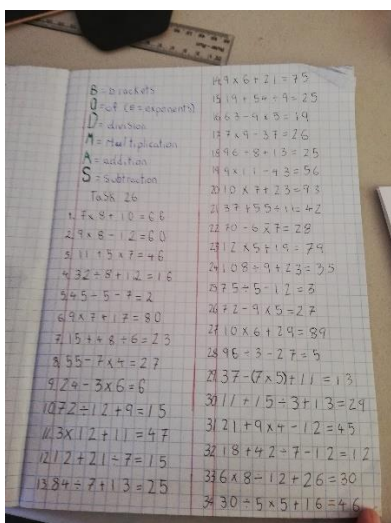 B = brackets
O = of (E = exponents)
D = division
M = Multiplication
A = addition
S = Subtraction
Task 26
1. 7 x 8 + 10 = 66
2. 9 x 8 - 12 = 60
3. 11 + 5 x 7 = 46
4. 32 ÷ 8 + 12 = 16
5. 45 ÷ 5 - 7 = 2
6. 9 x 7 + 17 = 80
7. 15 + 48 ÷ 6 = 23
8. 55 - 7 x 4 = 27
9. 24 - 3 x 6 = 6
10. 72 ÷ 12 + 9 = 15
11. 3 x 12 + 11 = 47
12. 12 + 21 ÷ 7 = 15
13. 84 ÷ 7 + 13 = 25
14. 9 x 6 + 21 = 75
15. 19 + 54 ÷ 9 = 25
16. 63 - 9 x 5 = 19
17. 7 x 9 - 37 = 26
18. 96 ÷ 8 + 13 = 25
19. 9 x 11 - 43 = 56
20. 10 x 7 + 23 = 93
21. 37 + 55 ÷ 11 = 42
22. 70 - 6 x 7 = 28
23. 12 x 5 + 19 = 79
24. 108 ÷ 9 + 23 = 35
25. 75 ÷ 5 - 12 = 3
26. 72 - 9 x 5 = 27
27. 10 x 6 + 29 = 89
28. 96 ÷ 3 - 27 = 5
29. 37 - (7 x 5) + 11 = 13
30. 11 + 15 ÷ 3 + 13 = 29
31. 21 + 9 x 4 - 12 = 45
32. 18 + 42 ÷ 7 - 12 = 12
33. 6 x 8 - 12 + 26 = 30
34. 30 ÷ 5 x 5 + 16 = 46